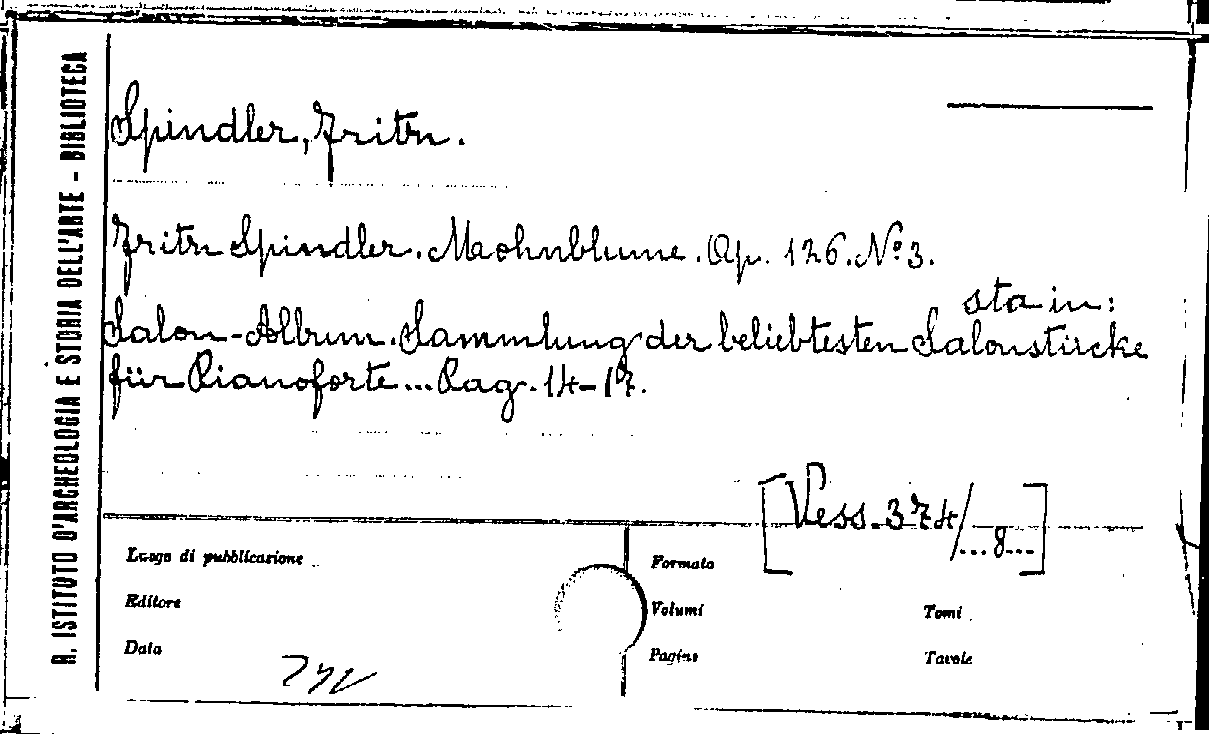 R. ISTITUTO D'ARCHEOLOGIA E STORIA DELL'ARTE - BIBLIOTECA
Spindler, Fritz.
Fritz Spindler. Mohnblume. Op. 126. Nº 3.
sta in:
Salon-Album. Sammlung der beliebtesten Salonstücke
für Pianoforte... Pag. 14-17.
[Vess. 374/...8...]
Luogo di pubblicazione
Formato
Editore
Volumi
Tomi
Data
Pagine
Tavole